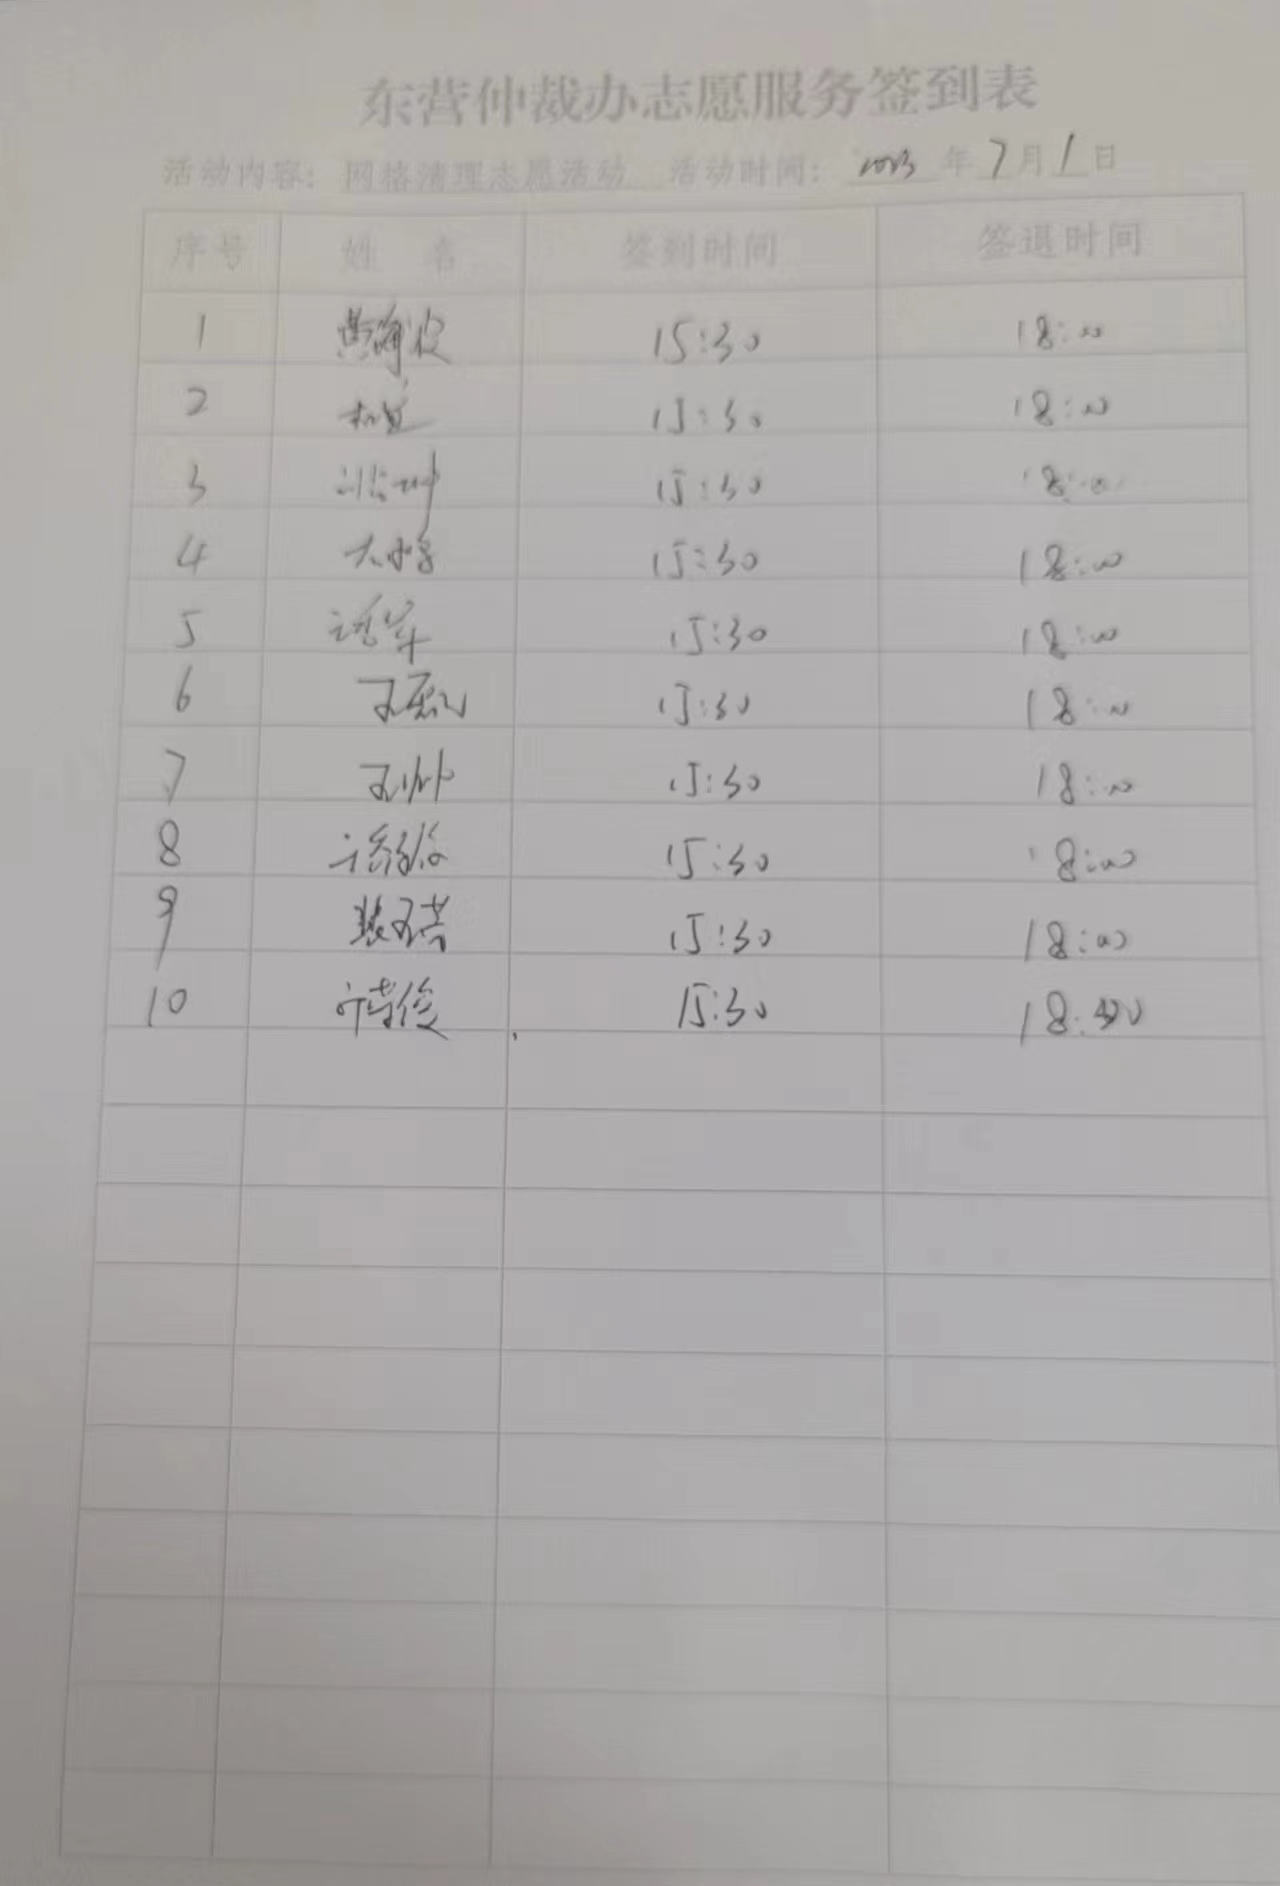 东营仲裁办志愿服务签到表
活动内容：网格清理志愿活动 活动时间：2023年7月1日
序号 姓 名 签到时间 签退时间
1 黄海波 15:30 18:00
2 15:30 18:00
3 15:30 18:00
4 15:30 18:00
5 15:30 18:00
6 王 15:30 18:00
7 王帅 15:30 18:00
8 15:30 18:00
9 15:30 18:00
10 15:30 18:00